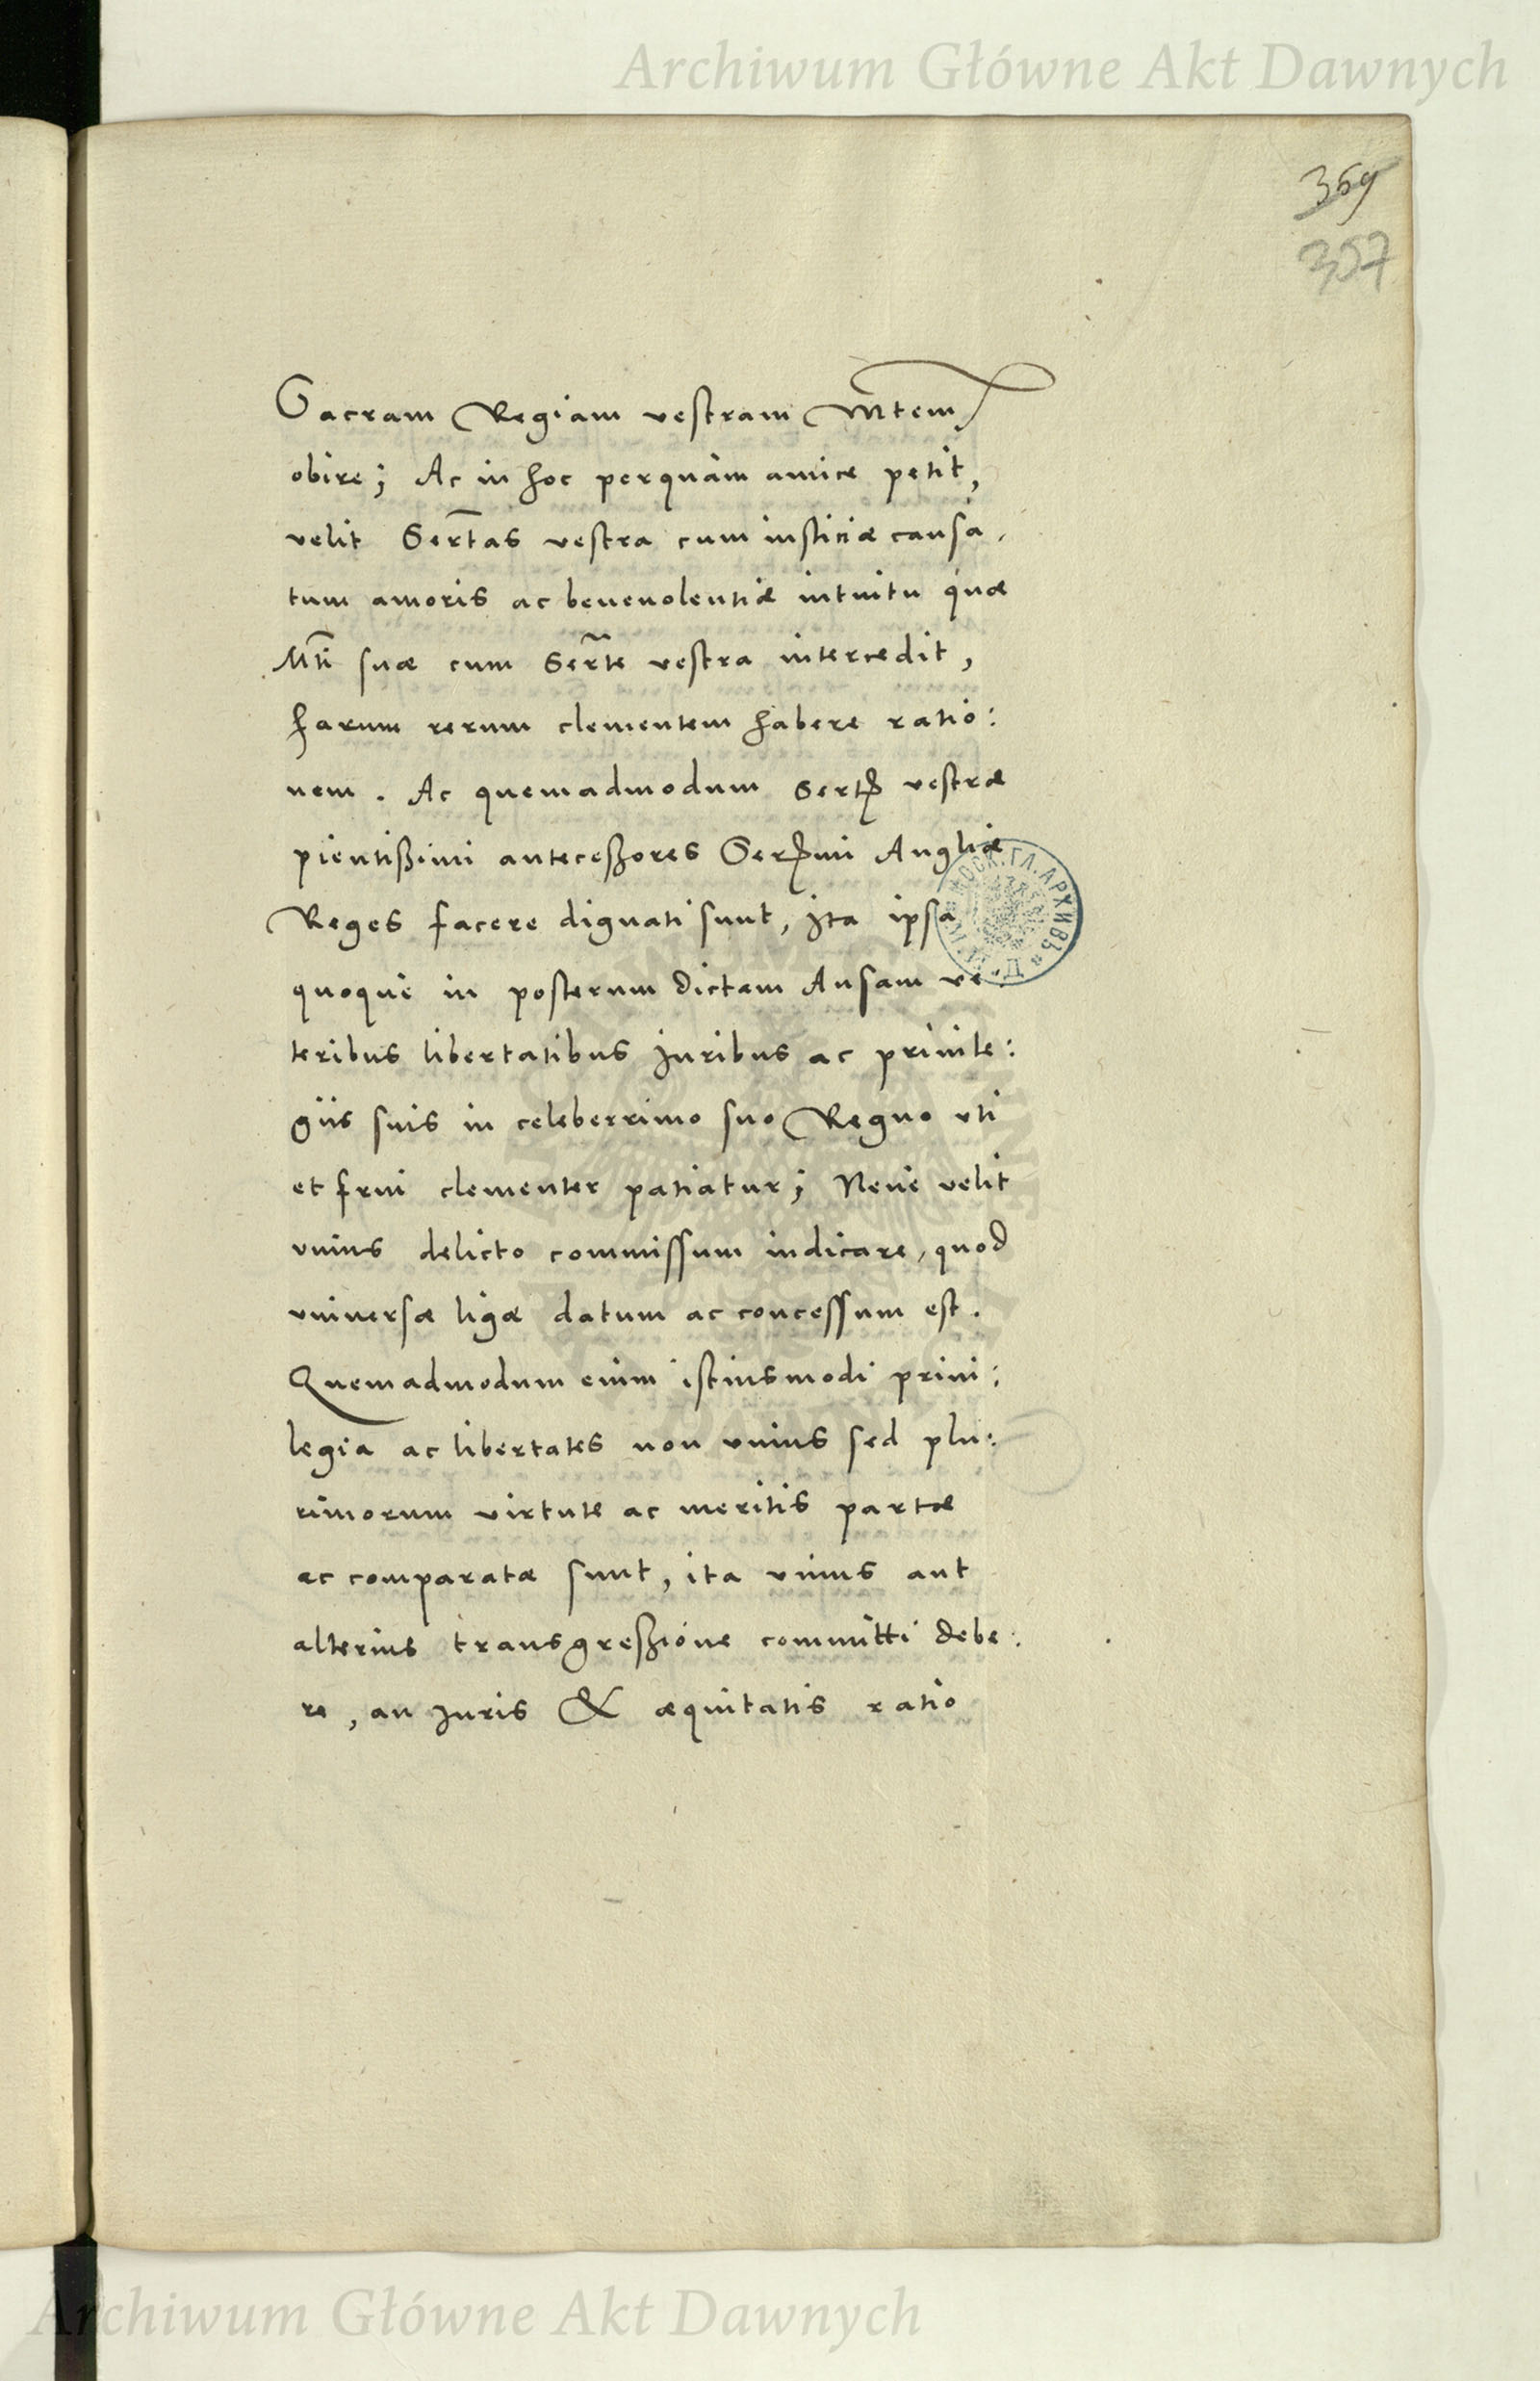 Archiwum Główne Akt Dawnych
369
357
Sacram Regiam vestram Mtem
obire; Ac in hoc perquàm amice petit,
velit Sertas vestra cum iusticiæ causa,
tum amoris ac beneuolentiæ intuitu quæ
Mti suæ cum Serte vestra intercedit,
harum rerum clementem habere ratio:
nem. Ac quemadmodum Sertis vestræ
pientißimi anteceßores Sermi Angliæ
Reges facere dignati sunt, Ita ipsa
quoque in posterum dictam Ansam ve:
teribus libertatibus Juribus ac priuile:
giis suis in celeberrimo suo Regno vti
et frui clementer patiatur; Neue velit
vnius delicto commissum iudicare, quod
vniuersæ ligæ datum ac concessum est.
Quemadmodum enim istiusmodi priui:
legia ac libertates non vnius sed plu:
rimorum virtute ac meritis partæ
ac comparatæ sunt, ita vnius aut
alterius transgreßione committi debe:
re, an Juris & æquitatis ratio
МОСК. ГЛ. АРХИВЪ
Archiwum Główne Akt Dawnych